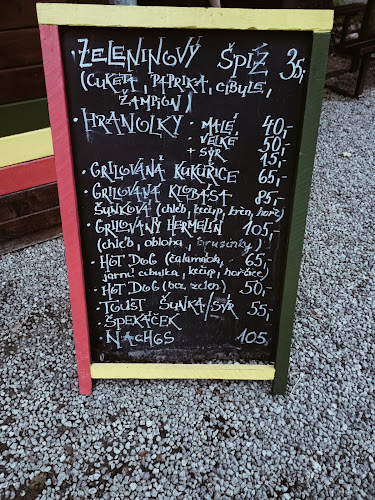 · ŽELENINOVÝ ŠPÍZ 35,-
(CUKETA, PAPRIKA, CIBULE,
ŽAMPION)
· HRANOLKY · MALÉ 40,-
VELKÉ 50,-
+ SÝR 15,-
· GRILOVANÁ KUKUŘICE 65,-
· GRILOVANÁ KLOBÁSA 85,-
ŠUNKOVÁ (chléb, kečup, křen, hořč)
· GRILOVANÝ HERMELÍN 105,-
(chléb, obloha, brusinky)
· HOT DOG (čalamáda, 65,-
jarní cibulka, kečup, hořčice)
· HOT DOG (bez zelen.) 50,-
· TOUST ŠUNKA/SÝR 55,-
· ŠPEKÁČEK
· NACHOS 105,-